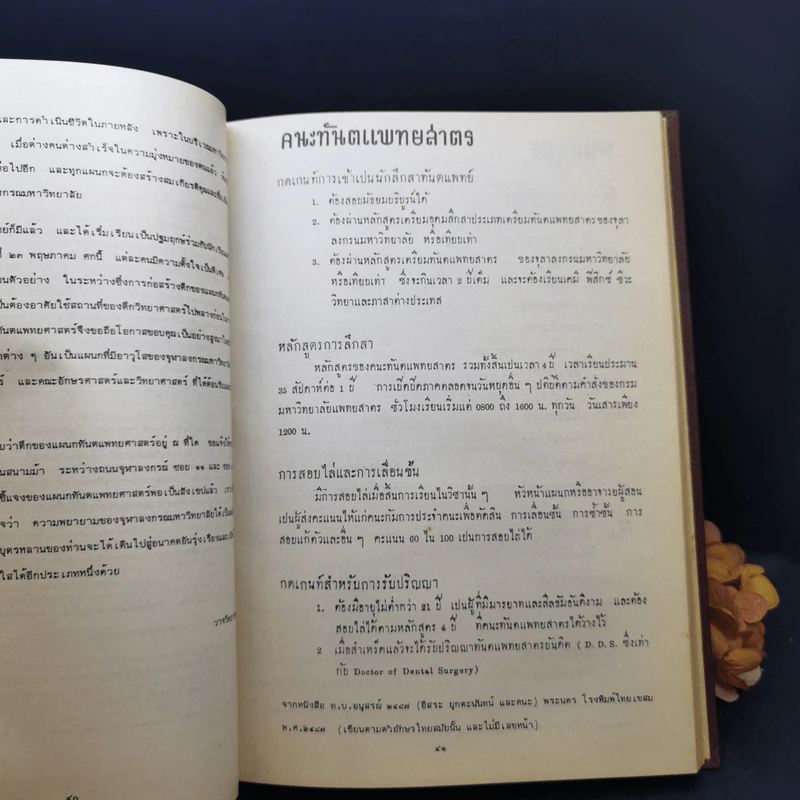 และการดำเนินชีวิตในภายหลัง เพราะในบริเวณมหาวิทยา
เมื่อต่างคนต่างสำเร็จในความมุ่งหมายของตนแล้ว
ต่อไปอีก และทุกแผนกจะต้องสร้างสมเกียรติคุณและชื่อ
กรณมหาวิทยาลัย
ย์ก็มีแล้ว และได้เริ่มเรียนเป็นปฐมฤกษ์ร่วมกับนักเรียน
ที่ ๒๓ พฤษภาคม ศกนี้ แต่ละคนมีความตั้งใจเป็นพิเศษ
นตัวอย่าง ในระหว่างซึ่งการก่อสร้างตึกของแผนกทันต
เป็นต้องอาศัยใช้สถานที่ของตึกวิทยาศาสตร์ไปพลางก่อน
ทันตแพทยศาสตร์จึงขอถือโอกาสขอบคุณเป็นอย่างสูง
กต่าง ๆ อันเป็นแผนกที่มีอาวุโสของจุฬาลงกรณมหาวิทยาลัย
ร์ และคณะอักษรศาสตร์และวิทยาศาสตร์ ที่ได้ต้อนรับ
บว่าตึกของแผนกทันตแพทยศาสตร์อยู่ ณ ที่ใด ขอแจ้ง
นสนามม้า ระหว่างถนนจุฬาลงกรณ์ ซอย ๑๑ และ ซอย
ชี้แจงของแผนกทันตแพทยศาสตร์พอเป็นสังเขปแล้ว
จว่า ความพยายามของจุฬาลงกรณมหาวิทยาลัยได้เป็น
บุตรหลานของท่านจะได้เดินไปสู่อนาคตอันรุ่งเรืองและ
ใสได้อีกประเภทหนึ่งด้วย
๔๐
คนะทันตแพทยสาตร
กดเกนท์การเข้าเปนนักสึกสาทันตแพทย์
1. ต้องสอบมัธยมบริบูรน์ได้
2. ต้องผ่านหลักสูตรเตรียมอุดมสึกสาประเภทเตรียมทันตแพทยสาตรของจุลา
ลงกรนมหาวิทยาลัย หรือเทียบเท่า
3. ต้องผ่านหลักสูตรเตรียมทันตแพทยสาตร ของจุลาลงกรนมหาวิทยาลัย
หรือเทียบเท่า ซึ่งจะกินเวลา 2 ปีเต็ม และจะต้องเรียนเคมี ฟีสิกซ์ ชีวะ
วิทยาและภาสาต่างประเทส
หลักสูตรการสึกสา
หลักสูตรของคนะทันตแพทยสาตร รวมทั้งสิ้นเปนเวลา 4 ปี เวลาเรียนประมาน
35 สัปดาห์ต่อ 1 ปี การเปิดปิดภาคตลอดจนวันหยุดอื่น ๆ ปติบัติตามคำสั่งของกรม
มหาวิทยาลัยแพทยสาตร ชั่วโมงเรียนเริ่มแต่ 0800 ถึง 1600 น. ทุกวัน วันเสาร์เพียง
1200 น.
การสอบไล่และการเลื่อนชั้น
มีการสอบไล่เมื่อสิ้นการเรียนในวิชานั้น ๆ หัวหน้าแผนกหรืออาจารย์ผู้สอน
เปนผู้ส่งคะแนนให้แก่คนะกัมการประจำคนะเพื่อตัดสิน การเลื่อนชั้น การซ้ำชั้น การ
สอบแก้ตัวและอื่น ๆ คะแนน 60 ใน 100 เปนการสอบไล่ได้
กดเกนท์สำหรับการรับปริญญา
1. ต้องมีอายุไม่ต่ำกว่า 21 ปี เปนผู้ที่มีมารยาทและสีลธัมอันดีงาม และต้อง
สอบไล่ได้ตามหลักสูตร 4 ปี ที่คนะทันตแพทยสาตรได้วางไว้
2 เมื่อสำเหร็ดแล้วจะได้รับปริญญาทันตแพทยสาตรบันดิต (D. D. S. ซึ่งเท่า
กับ Doctor of Dental Surgery)
จากหนังสือ ท.บ.อนุสรณ์ ๒๔๘๗ (อิสระ ยุกตะนันทน์ และคนะ) พระนคร โรงพิมพ์ไทยเขสม
พ.ศ.๒๔๘๗ (เขียนตามตัวอักษรไทยสมัยนั้น และไม่มีเลขหน้า)
๔๑